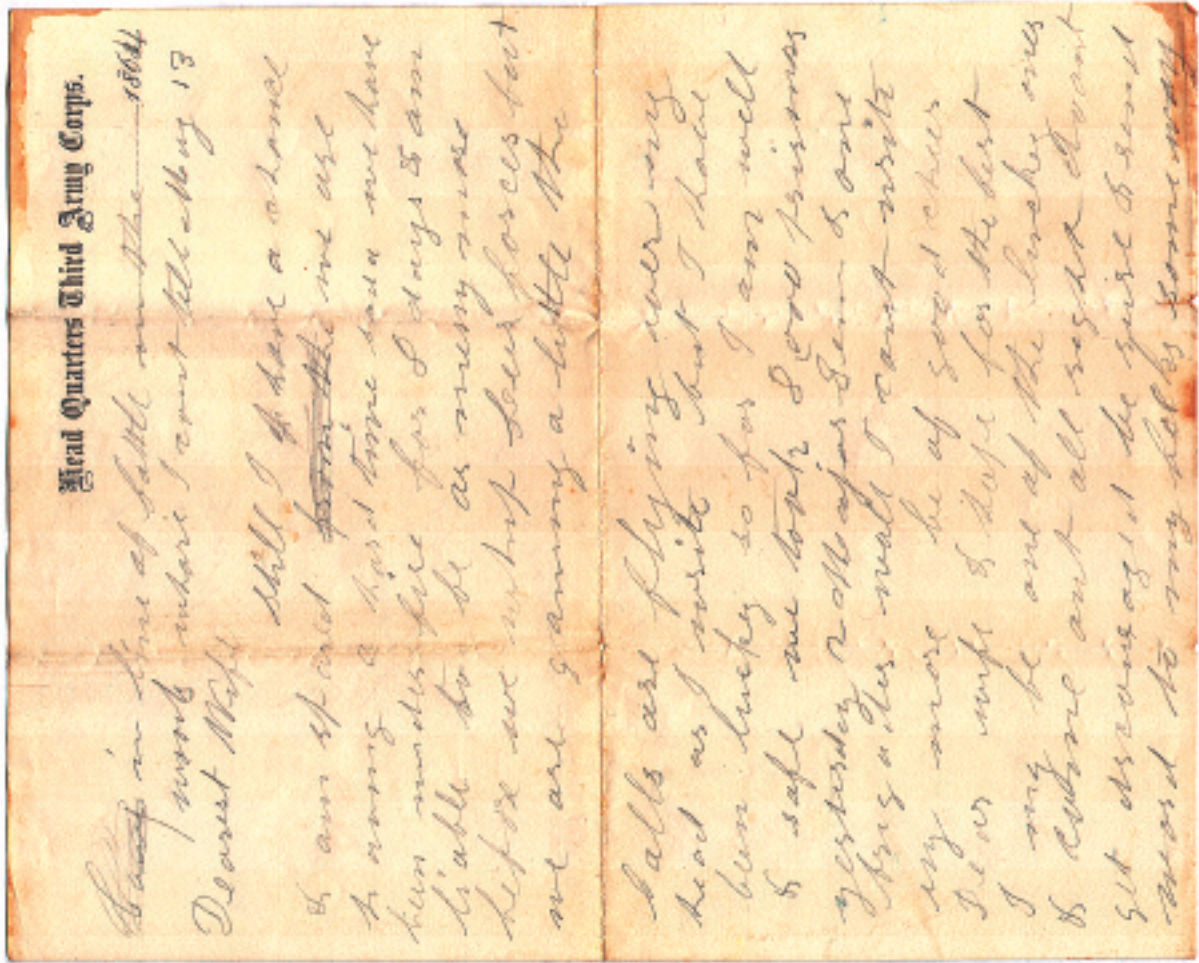 Head Quarters Third Army Corps.
in line of battle on the 1864
front where I cant tell May 13
Dearest Wife
Still I have a chance
& am we are
having a hard time and we have
been under fire for 8 days & am
liable to be as meny more
before we whip forces but
we are gaining a little the
balls are flying over my
head as I write but I have
been lucky so far I am well
& safe we took 8,000 prisoners
yesterday 2 Major Gen & one
Brigadier well I cant write
any more be of good cheer
Dear wife & hope for the best
I may be one of the lucky ones
& come out all right dont
get discouraged be sure & send
word to my folks some way